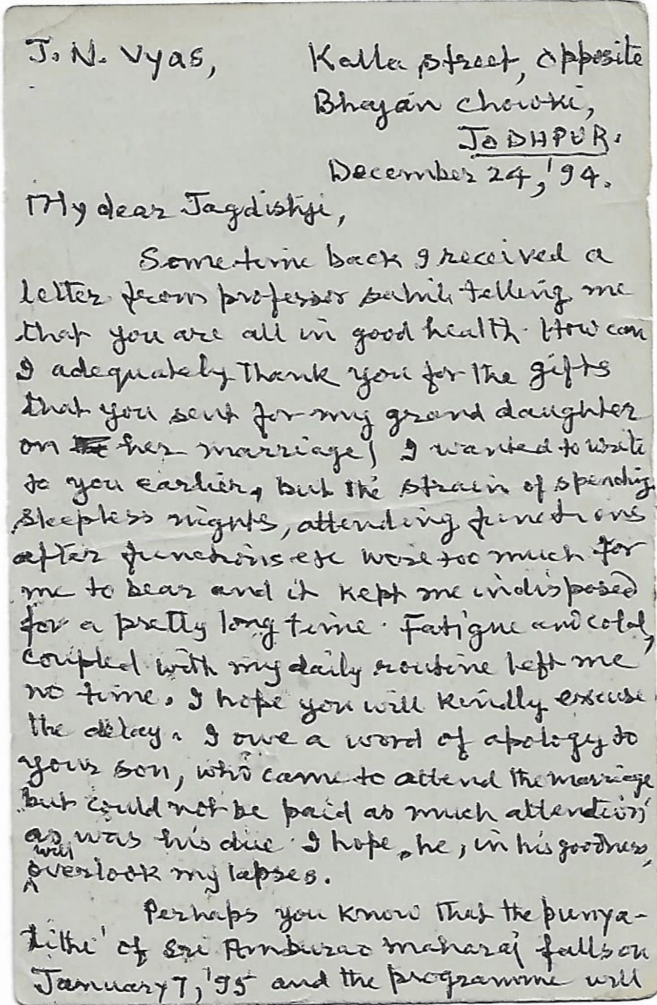 J. N. Vyas,
Kalla Street, Opposite
Bhayan Chowki,
JODHPUR.
December 24, '94.
My dear Jagdishji,
Some time back I received a
letter from professor sahib telling me
that you are all in good health. How can
I adequately thank you for the gifts
that you sent for my grand daughter
on her marriage! I wanted to write
to you earlier, but the strain of spending
sleepless nights, attending functions
after functions etc were too much for
me to bear and it kept me indisposed
for a pretty long time. Fatigue and cold,
coupled with my daily routine left me
no time. I hope you will kindly excuse
the delay. I owe a word of apology to
your son, who came to attend the marriage
but could not be paid as much attention
as was his due. I hope, he, in his goodness,
will overlook my lapses.
Perhaps you know that the punya-
tithi of Sri Amburao maharaj falls on
January 7, '95 and the programme will